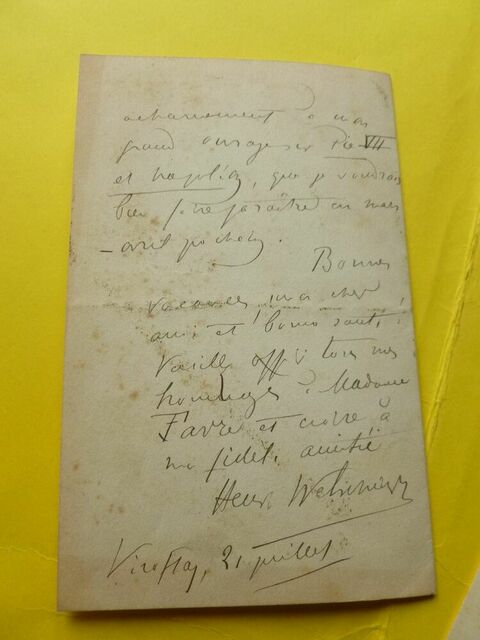 acharnement à mon
grand ouvrage sur Pie VII
et Napoléon, que je voudrais
bien faire paraître en mars
- avril prochain.
Bonnes
vacances, mon cher
ami, et bonne santé !
Veuillez offrir tous mes
hommages à Madame
Favre et croire à
ma fidèle amitié
Henri Welschinger
Viroflay, 21 juillet